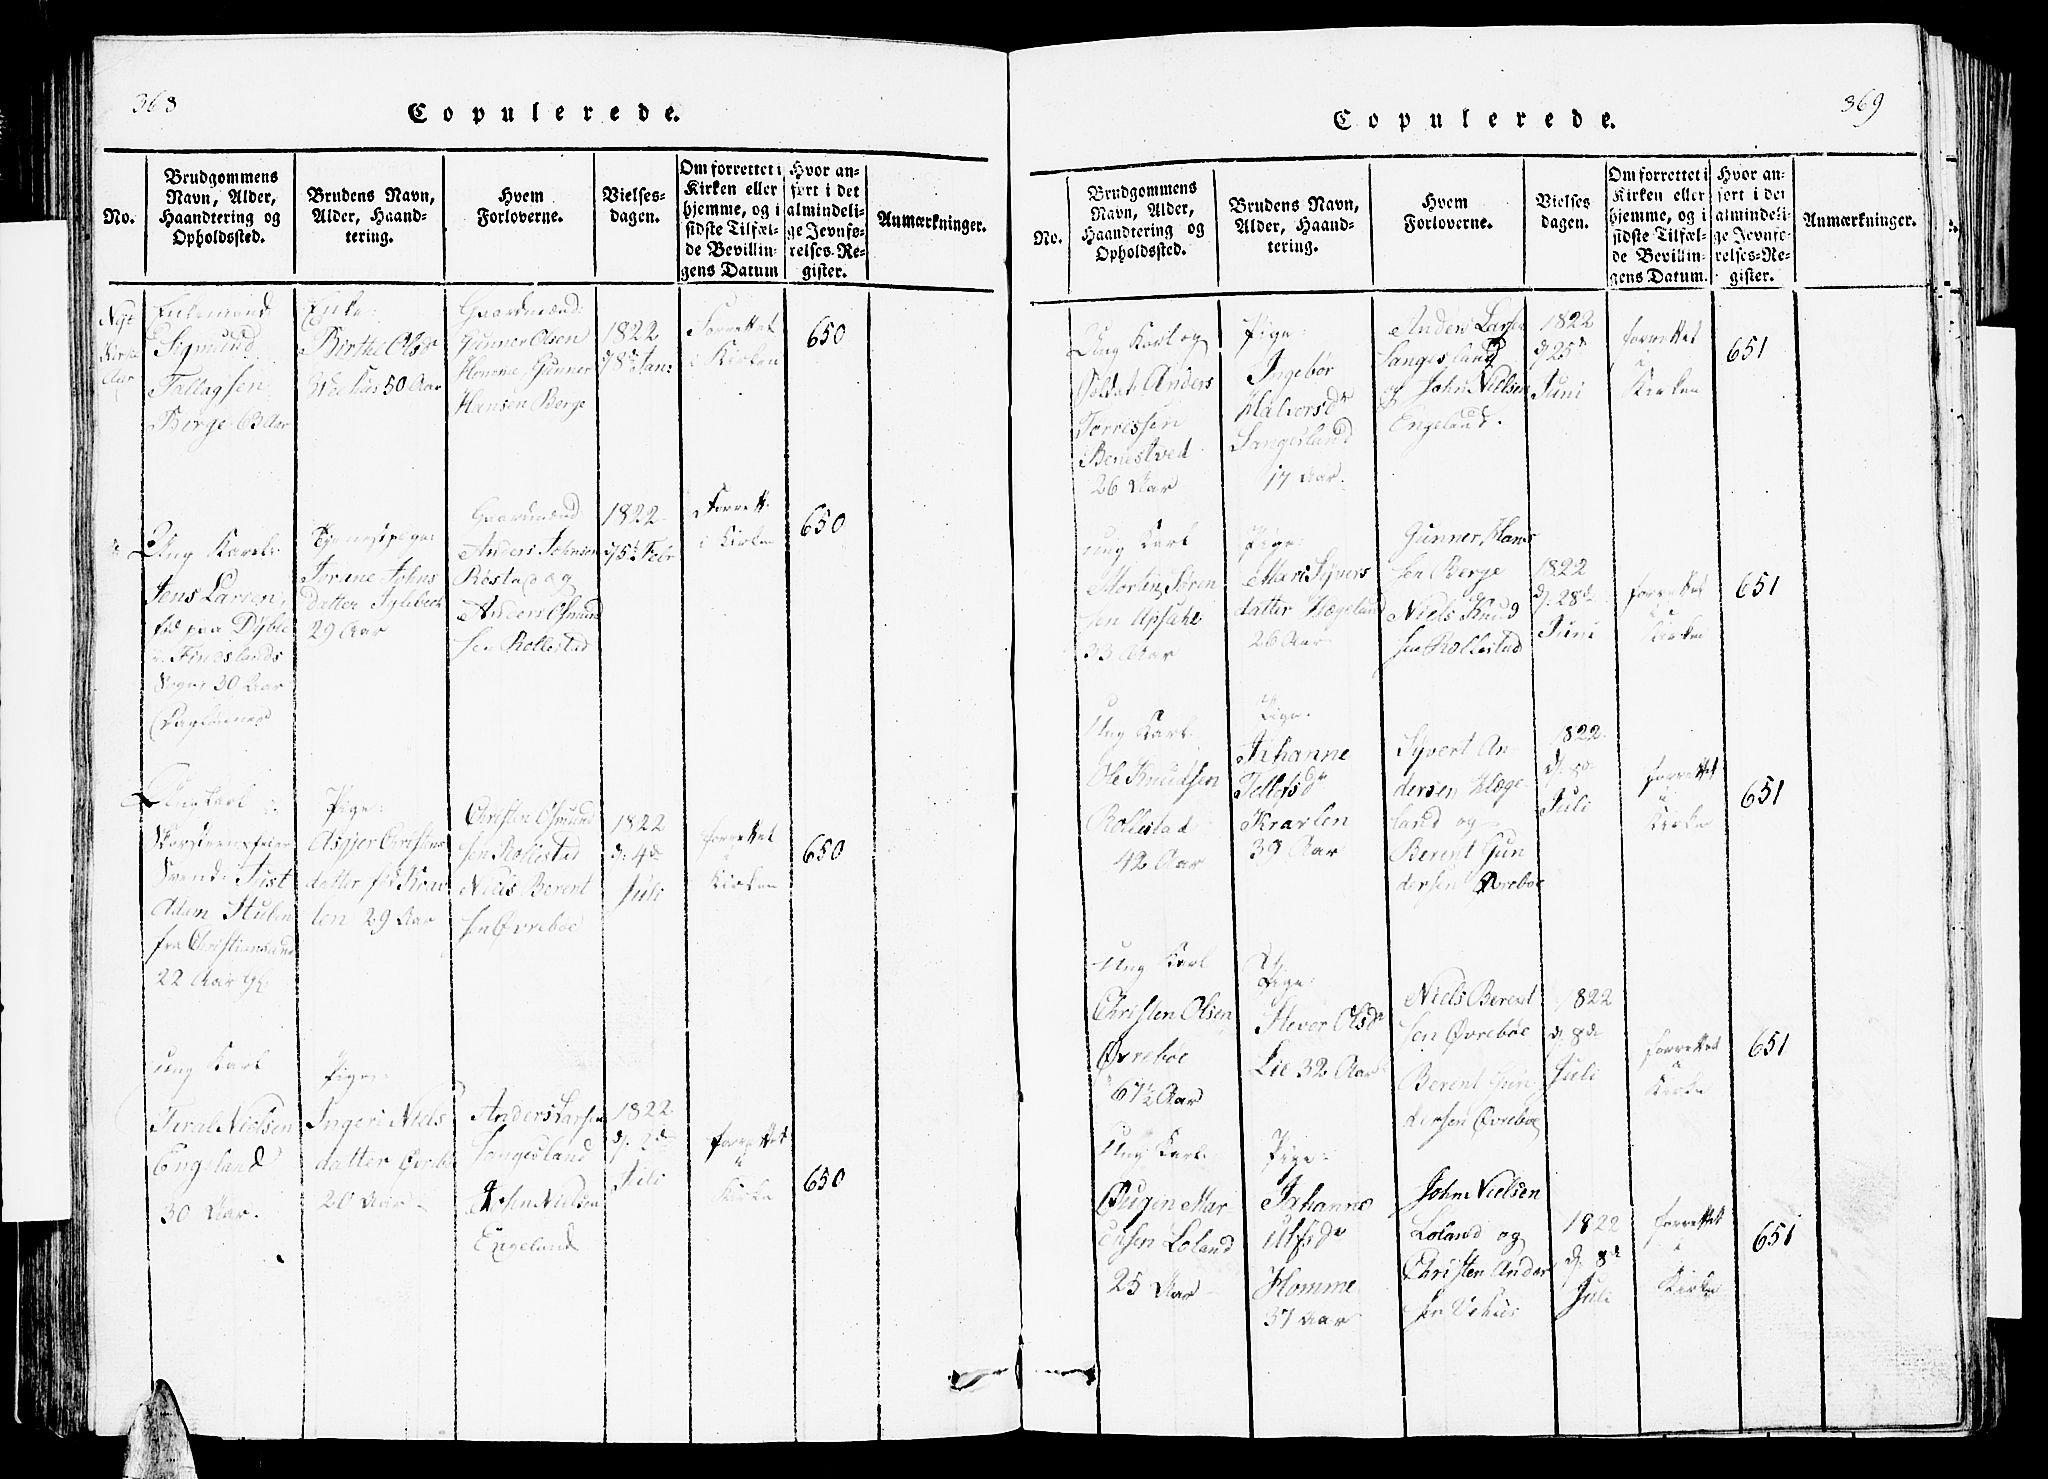 368
Copulerede.
No.
Brudgommens
Navn, Alder,
Haandtering og
Opholdssted.
Brudens Navn,
Alder, Haand-
tering.
Hvem
Forloverne.
Vielses-
dagen.
Om forrettet i
Kirken eller
hjemme, og i
sidste Tilfæl-
de Bevillin-
gens Datum
Hvor an-
ført i det
almindeli-
ge Jevnfø-
relses-Re-
gister.
Anmærkninger.
Nyt
Kirke
Aar
Enkemand
Sigmund
Tallagsen
Berge 63 Aar
Enke:
Birthe Olsdr
Veehus 50 Aar
Gaardmænd:
Gunner Olsen
Homme, Gunner
Hansen Berge
1822
d 8de Jan:
Forrettet
i Kirken
650
Ung Karl:
Jens Larsen,
fød paa Dyble
i Findslands
Sogn, 30 Aar
Tjenestepige:
Jorine Johns
datter
29 Aar
Gaardmænd
Anders Johnsen
Røstad og
Anders Osmund
sen Rollestad
1822
d 5te Febr
Forrett.
i Kirken
650
Ung Karl
Skorsteensfeier
Svend Just
Adam Stuben
fra Christiansand
22 Aar gl.
Pige:
Asgjer Christens
datter fra Krav
len 29 Aar
Christen Osmund
sen Rollestad
Niels Berent
sen Øvrebøe
1822
d. 4de
Juli
forrettet
i
Kirken
650
Ung Karl
Teral Nielsen
Engeland
30 Aar.
Pige:
Ingeri Niels
datter Øvrebø
20 Aar
Anders Larsen
Langesland
Nielsen
Engeland
1822
d. 2de
Juli
forrettet
i
Kirke
650
369
Copulerede.
No.
Brudgommens
Navn, Alder,
Haandtering og
Opholdssted.
Brudens Navn,
Alder, Haand-
tering.
Hvem
Forloverne.
Vielses
dagen.
Om forrettet i
Kirken eller
hjemme, og i
sidste Tilfæl-
de Bevillin-
gens Datum.
Hvor an-
ført i det
almindeli-
ge Jevnfø-
relses-Re-
gister.
Anmærkninger.
Ung Karl og
Soldat Anders
Torressen
Benestved
26 Aar
Pige:
Ingebor
Halvorsdr
Langesland
17 Aar.
Anders Larsen
Langesland
og John Nielsen
Engeland.
1822
d 25de
Juni
forrettet
i
Kirken
651
ung Karl
Morten Søren
sen Upsahl
33 Aar
Pige:
Mari Syvers
datter Hægeland
26 Aar
Gunner Hans
sen Berge
Niels Knud
sen Rollestad
1822
d. 28de
Juni
forrettet
i
Kirken
651
Ung Karl
Ole Knudsen
Rollestad
42 Aar
Pige.
Johanne
Tellefsdr
Kravlen
39 Aar
Syvert An
dersen Hæge
land og
Berent Gun
dersen Øvrebøe
1822
d. 8de
Juli
forrettet
i
Kirke
651
Ung Karl
Christen Olsen
Øvrebøe
67½ Aar
Pige:
Olsdr
Lie 32 Aar
Niels Berent
sen Øvrebøe
Berent Gun
dersen Øvrebøe
1822
d. 8de
Juli
forrettet
i
Kirke
651
Ung Karl
Mar
cusen Loland
25 Aar
Pige:
Johanne
Ulfsdr
Homme
37 Aar
John Nielsen
Loland og
Christen Ander
sen Vehus
1822
d. 8de
Juli
forrettet
i
Kirke
651